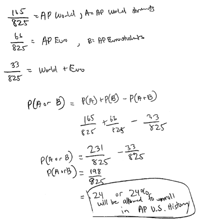 165/825 = AP World, A = AP World Students
66/825 = AP Euro, B = AP Euro students
33/825 = World + Euro
P(A or B) = P(A) + P(B) - P(A+B)
165/825 + 66/825 - 33/825
P(A or B) = 231/825 - 33/825
P(A or B) = 198/825
= .24 or 24%
will be allowed to enroll
in AP U.S. History